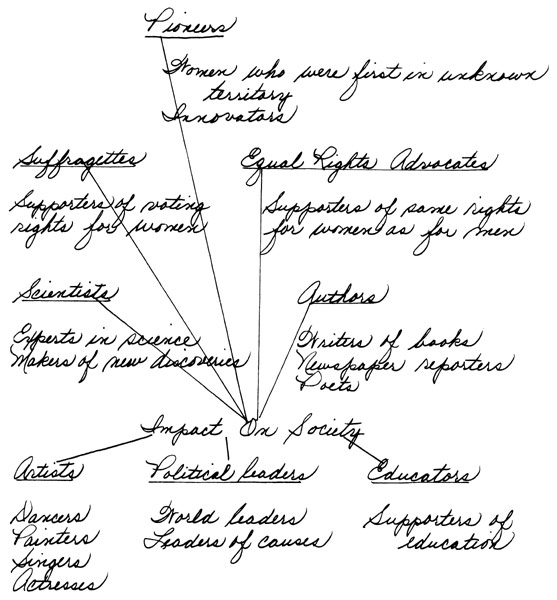 Pioneers
Women who were first in unknown
territory
Innovators
Suffragettes
Supporters of voting
rights for women
Equal Rights Advocates
Supporters of same rights
for women as for men
Scientists
Experts in science
Makers of new discoveries
Authors
Writers of books
Newspaper reporters
Poets
Impact On Society
Artists
Dancers
Painters
Singers
Actresses
Political leaders
World leaders
Leaders of causes
Educators
Supporters of
education